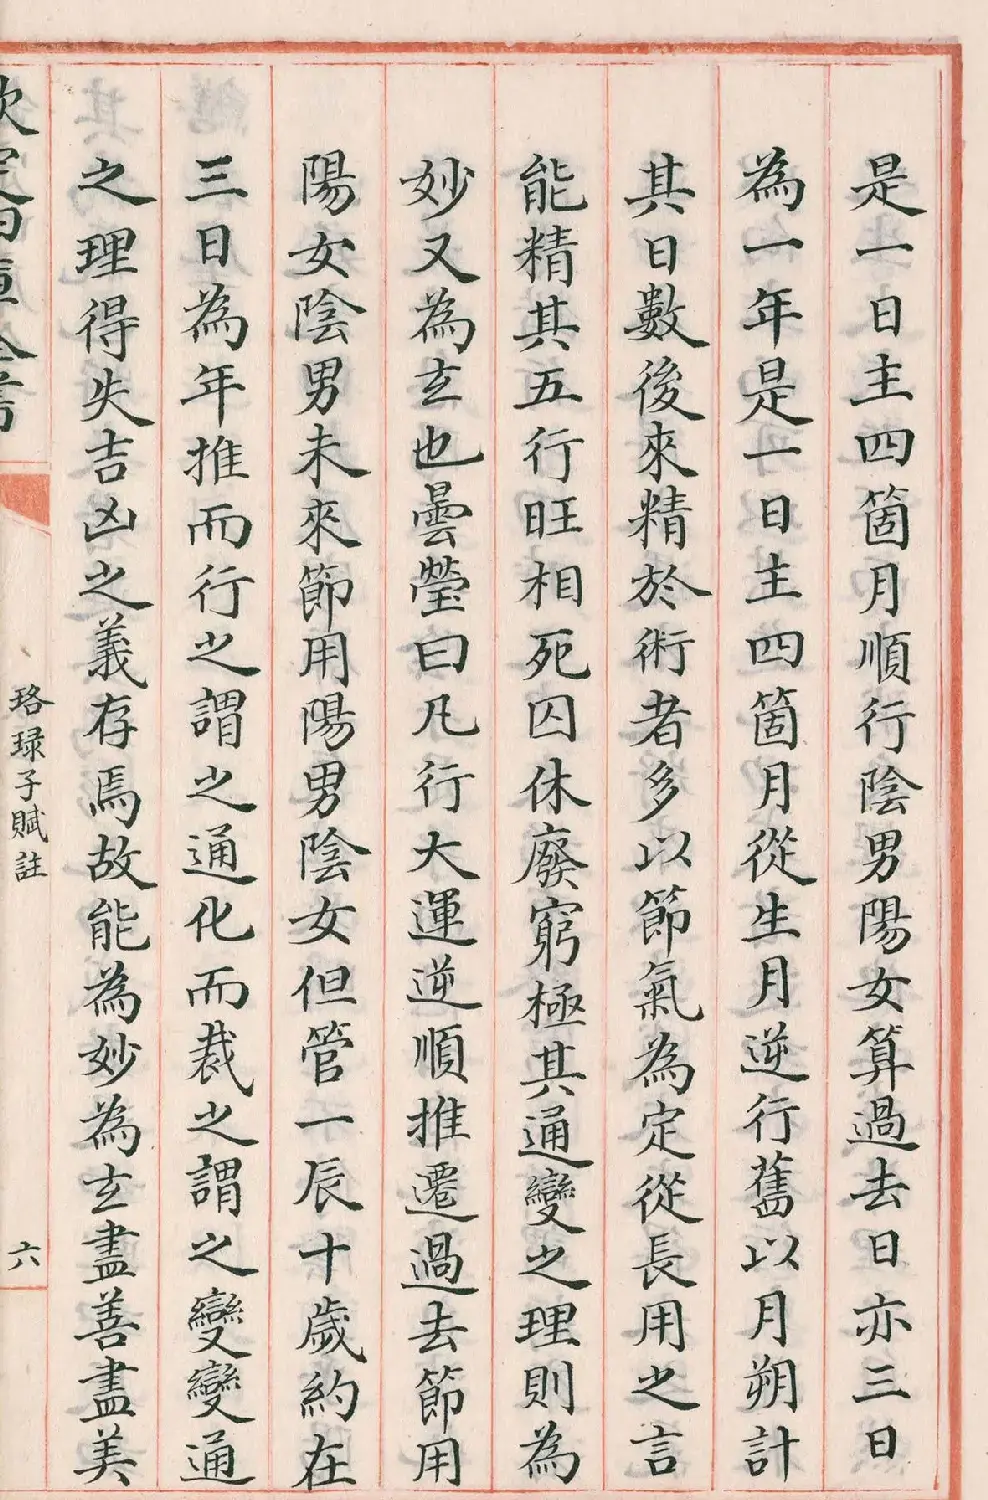 是一日主四箇月順行陰男陽女算過去日亦三日
為一年是一日主四箇月從生月逆行舊以月朔計
其日數後來精於術者多以節氣為定從長用之言
能精其五行旺相死囚休廢窮極其通變之理則為
妙又為玄也曇瑩曰凡行大運逆順推遷過去節用
陽女陰男未來節用陽男陰女但管一辰十歲約在
三日為年推而行之謂之通化而裁之謂之變變通
之理得失吉凶之義存焉故能為妙為玄盡善盡美
欽定四庫全書
珞琭子賦註
六